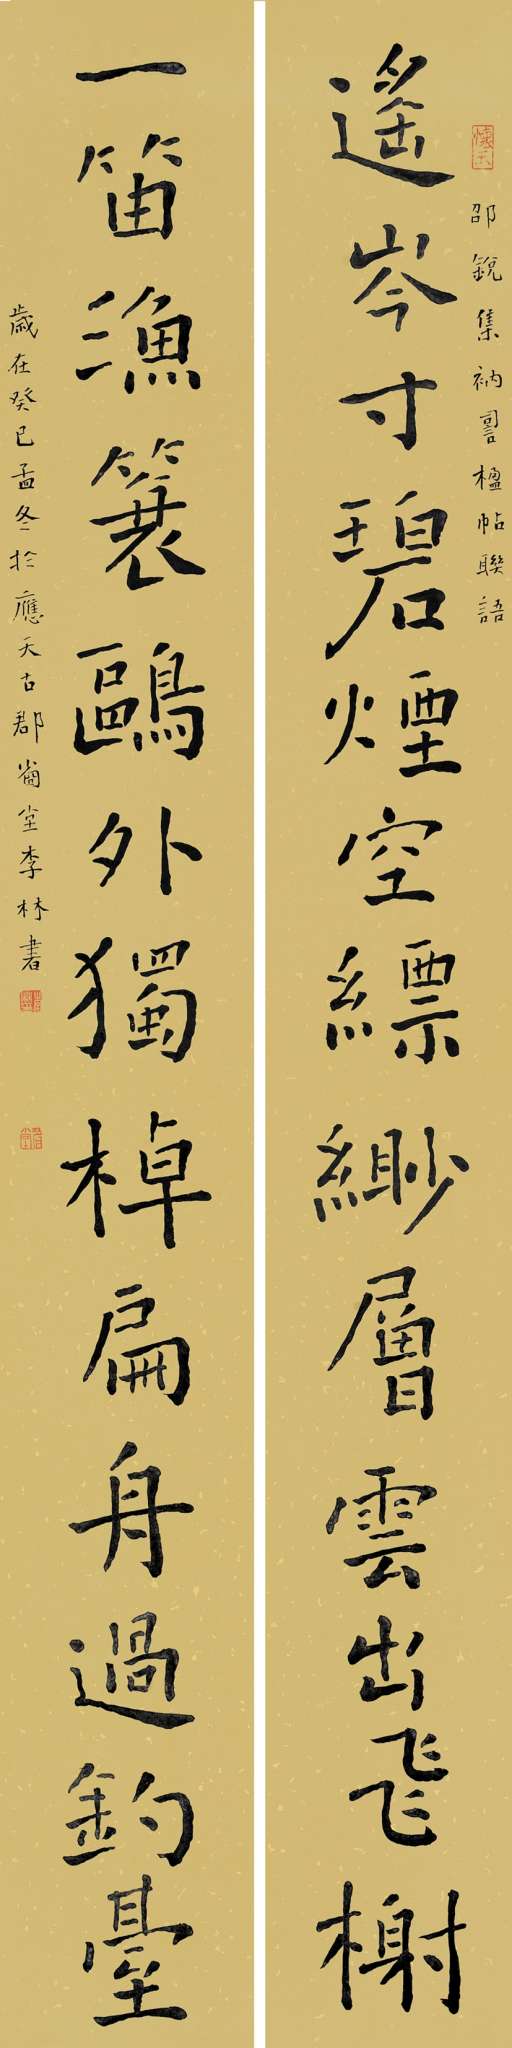 邵銳集衲詞楹帖聯語
遙岑寸碧煙空縹緲層雲出飛榭
一笛漁簑鷗外獨棹扁舟過釣臺
歲在癸巳孟冬於應天古郡崙堂李林書